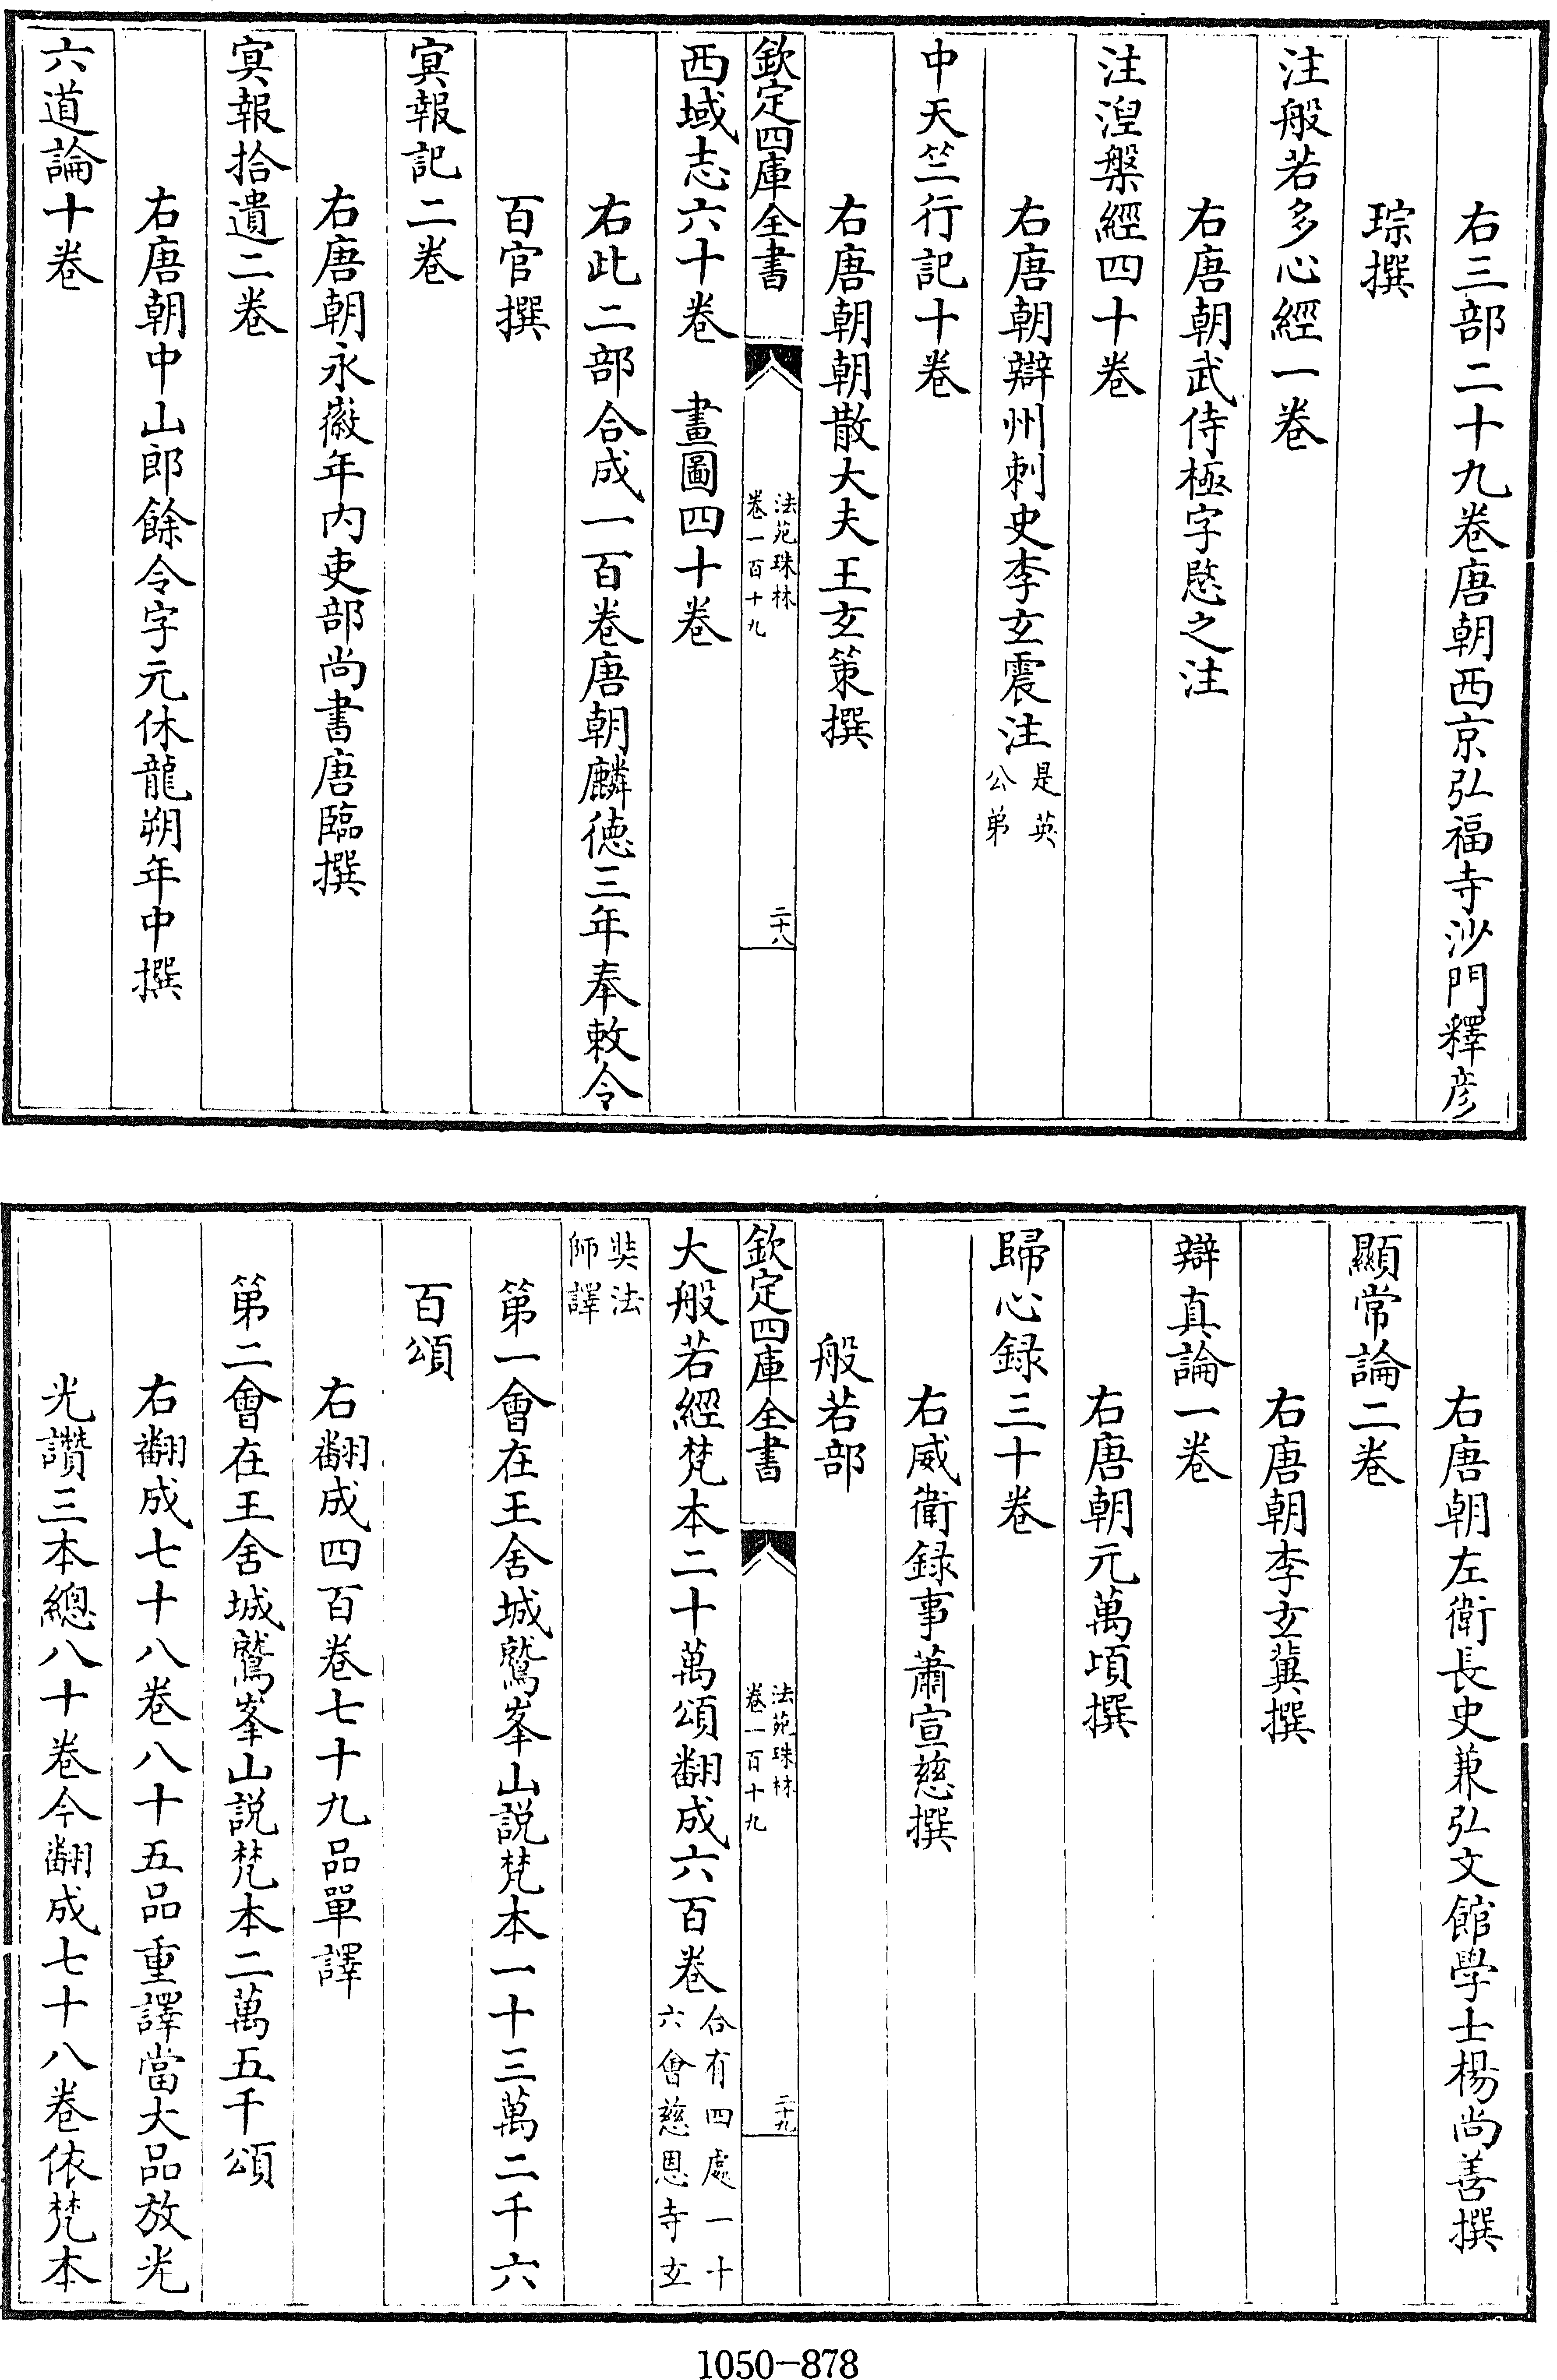 右三部二十九卷唐朝西京弘福寺沙門釋彦
琮撰
注般若多心經一卷
右唐朝武侍極字愍之注
注湼槃經四十卷
右唐朝辯州刺史李玄震注是英公弟
中天竺行記十卷
右唐朝朝散大夫王玄策撰
欽定四庫全書 法苑珠林 卷一百十九 二十八
西域志六十卷 畫圖四十卷
右此二部合成一百卷唐朝麟徳三年奉敕令
百官撰
㝠報記二卷
右唐朝永徽年内吏部尚書唐臨撰
㝠報拾遺二卷
右唐朝中山郎餘令字元休龍朔年中撰
六道論十卷
右唐朝左衛長史兼弘文館學士楊尚善撰
顯常論二卷
右唐朝李玄冀撰
辯真論一卷
右唐朝元萬頃撰
歸心録三十卷
右威衛録事蕭宣慈撰
般若部
欽定四庫全書 法苑珠林 卷一百十九 二十九
大般若經梵本二十萬頌翻成六百卷合有四處一十六會慈恩寺玄
奘法師譯
第一會在王舍城鷲峯山説梵本一十三萬二千六
百頌
右翻成四百卷七十九品單譯
第二會在王舍城鷲峯山説梵本二萬五千頌
右翻成七十八卷八十五品重譯當大品放光
光讚三本總八十卷今翻成七十八卷依梵本
1050-878